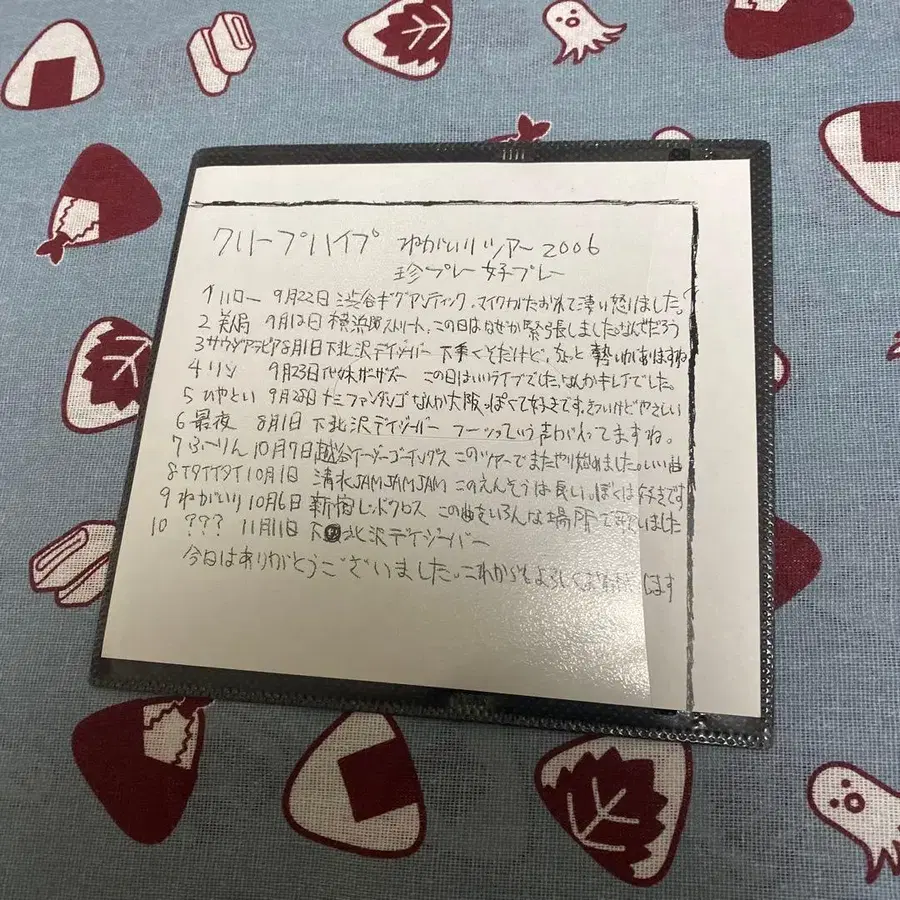 クリープハイプ ねがいりツアー2006
珍プレー好プレー
1 ハロー 9月22日 渋谷ギグアンティック、マイクがたおれて凄い怒りました。
2 美人局 9月12日 横浜ストリート、この日はなぜか緊張しました。なんでだろう
3 サウダアラビア 8月1日 下北沢デイジーバー 下手くそだけど、ちょっと勢いがありますね
4 リン 9月23日 ザーズー この日はいいライブでした。なんかキレイでした。
5 ひやとい 9月28日 ファンダンゴ なんか大阪っぽくて好きです。きついけどやさしい
6 最夜 8月1日 下北沢デイジーバー フーッっていう声がいってますね。
7 ふーりん 10月7日 越谷イージーゴーイングス このツアーでまたやり始めました。いい曲
8 イタイイタイ 10月1日 清水JAMJAMJAM このえんそうは長い。ぼくは好きです
9 ねがいり 10月6日 新宿レッドクロス この曲をいろんな場所で歌いました
10 ??? 11月11日 下北沢デイジーバー
今日はありがとうございました。これからもよろしくお します